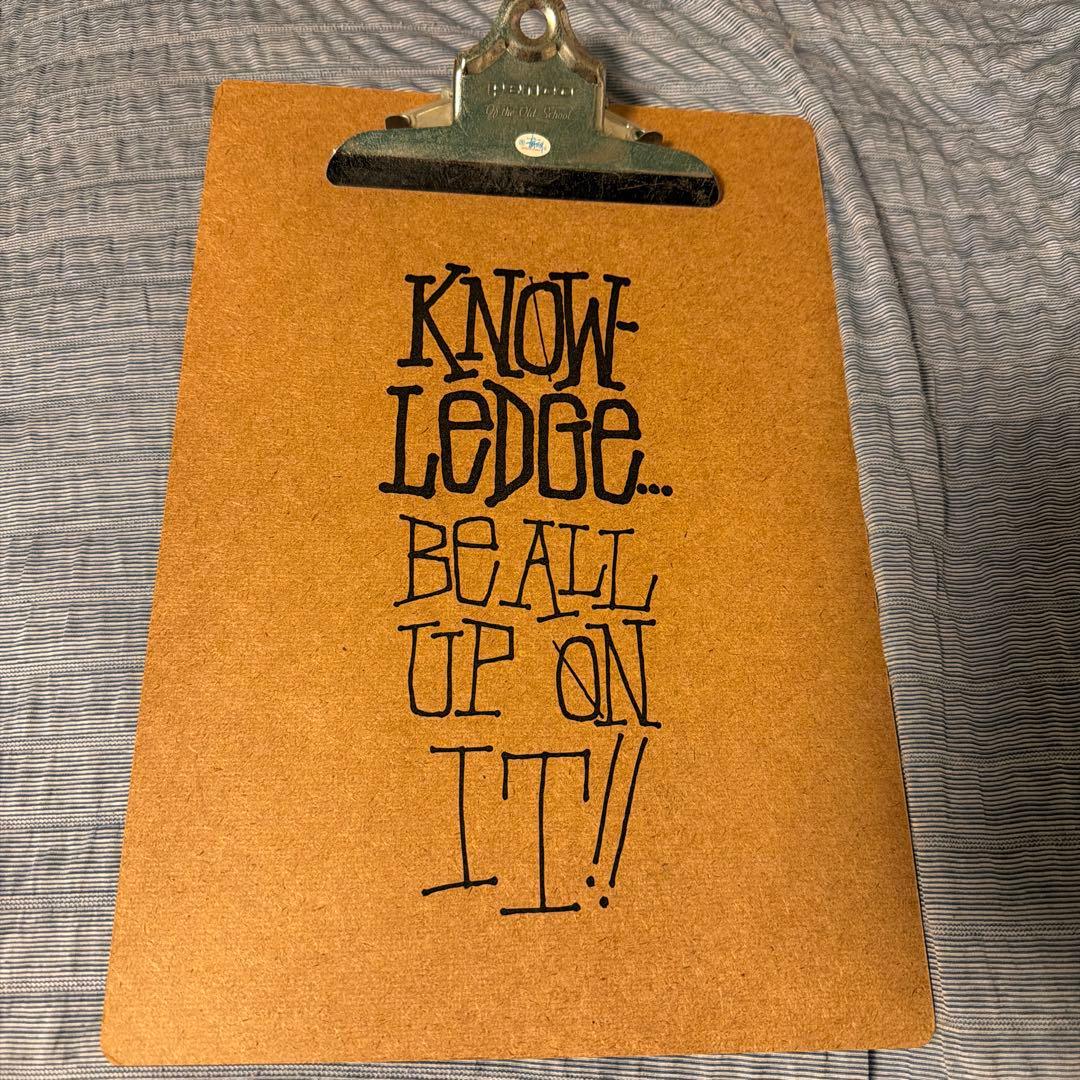 penco
Of the Old School
KNOW-
LeDGe...
Be ALL
UP ON
IT!!